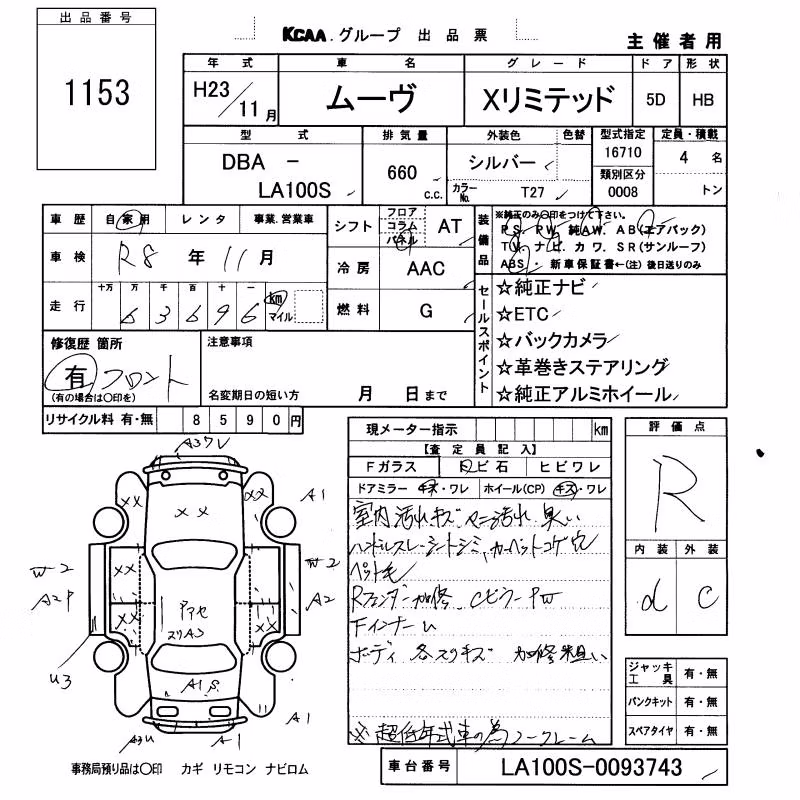 出品番号
1153
KCAA.グループ 出品票
主催者用
年式 車名 グレード ドア 形状
H23/11月 ムーヴ Xリミテッド 5D HB
型式 排気量 外装色 色替 型式指定 定員・積載
DBA - LA100S
660 c.c.
シルバー
カラーNo. T27
16710
類別区分
0008
4名
トン
車歴 自家用 レンタ 事業.営業車
車検 R8年11月
走行 十万 万 千 百 十 一
63696 km マイル
シフト フロア コラム パネル AT
冷房 AAC
燃料 G
装備品
※純正のみ○印をつけて下さい。
PS. PW. 純AW. AB(エアバック)
TV. ナビ. カワ. SR(サンルーフ)
ABS・新車保証書←(注)後日送りのみ
セールスポイント
☆純正ナビ
☆ETC
☆バックカメラ
☆革巻きステアリング
☆純正アルミホイール
修復歴 箇所
有 フロント
(有の場合は○印を)
注意事項
名変期日の短い方 月 日まで
リサイクル料 有・無 8590円
現メーター指示 km
【査定員記入】
Fガラス 飛ビ石 ヒビワレ
ドアミラー キズ・ワレ ホイール(CP) キズ・ワレ
室内汚れキズ マニ汚れ 臭い
ハンドルスレ シートシミ、カーペットコゲ穴
ペット毛
Rフェンダー加修 CピラーPW
Fインナーu
ボディ各スリキズ 加修粗い
※超低年式車の為ノークレーム
評価点
R
内装 外装
d C
ジャッキ工具 有・無
パンクキット 有・無
スペアタイヤ 有・無
A3 A1 A1
W2 W2
A2P A2
U3
XX XX XX XX XX XX
スリA3
A1 S
A1 A1
事務局預り品は○印 カギ リモコン ナビロム
車台番号 LA100S-0093743